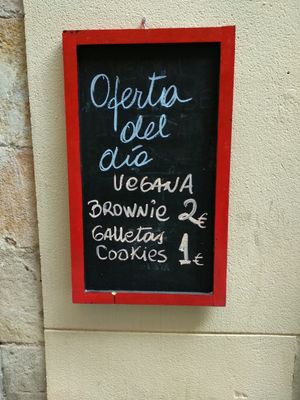 Oferta
del
día
VEGANA
BROWNIE 2€
GALLetas
COOKIES 1€